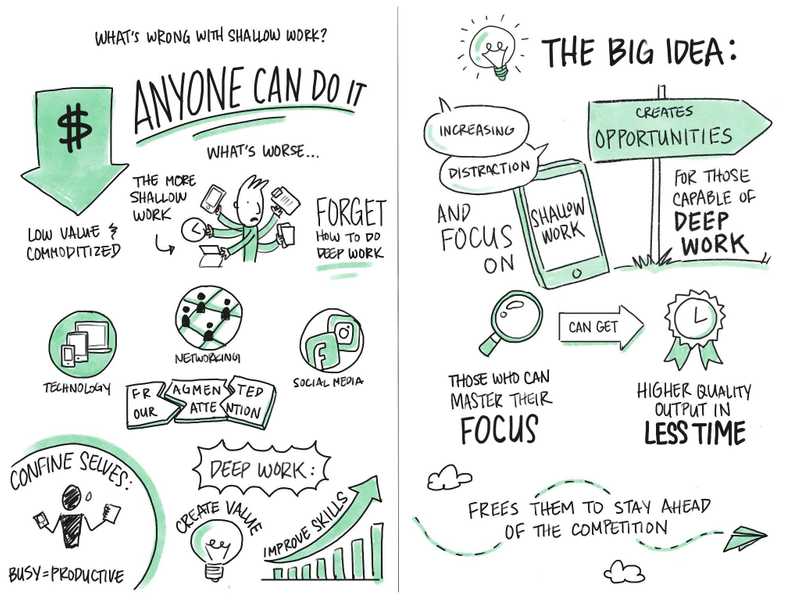 WHAT'S WRONG WITH SHALLOW WORK?
$
ANYONE CAN DO IT
LOW VALUE &
COMMODITIZED
WHAT'S WORSE...
THE MORE
SHALLOW
WORK
FORGET
HOW TO DO
DEEP WORK
TECHNOLOGY
NETWORKING
SOCIAL MEDIA
FRAGMENTED
OUR ATTENTION
CONFINE SELVES:
BUSY=PRODUCTIVE
DEEP WORK:
CREATE VALUE
IMPROVE SKILLS
THE BIG IDEA:
INCREASING
DISTRACTION
AND
FOCUS
ON
SHALLOW
WORK
CREATES
OPPORTUNITIES
FOR THOSE
CAPABLE OF
DEEP
WORK
THOSE WHO CAN
MASTER THEIR
FOCUS
CAN GET
HIGHER QUALITY
OUTPUT IN
LESS TIME
FREES THEM TO STAY AHEAD
OF THE COMPETITION